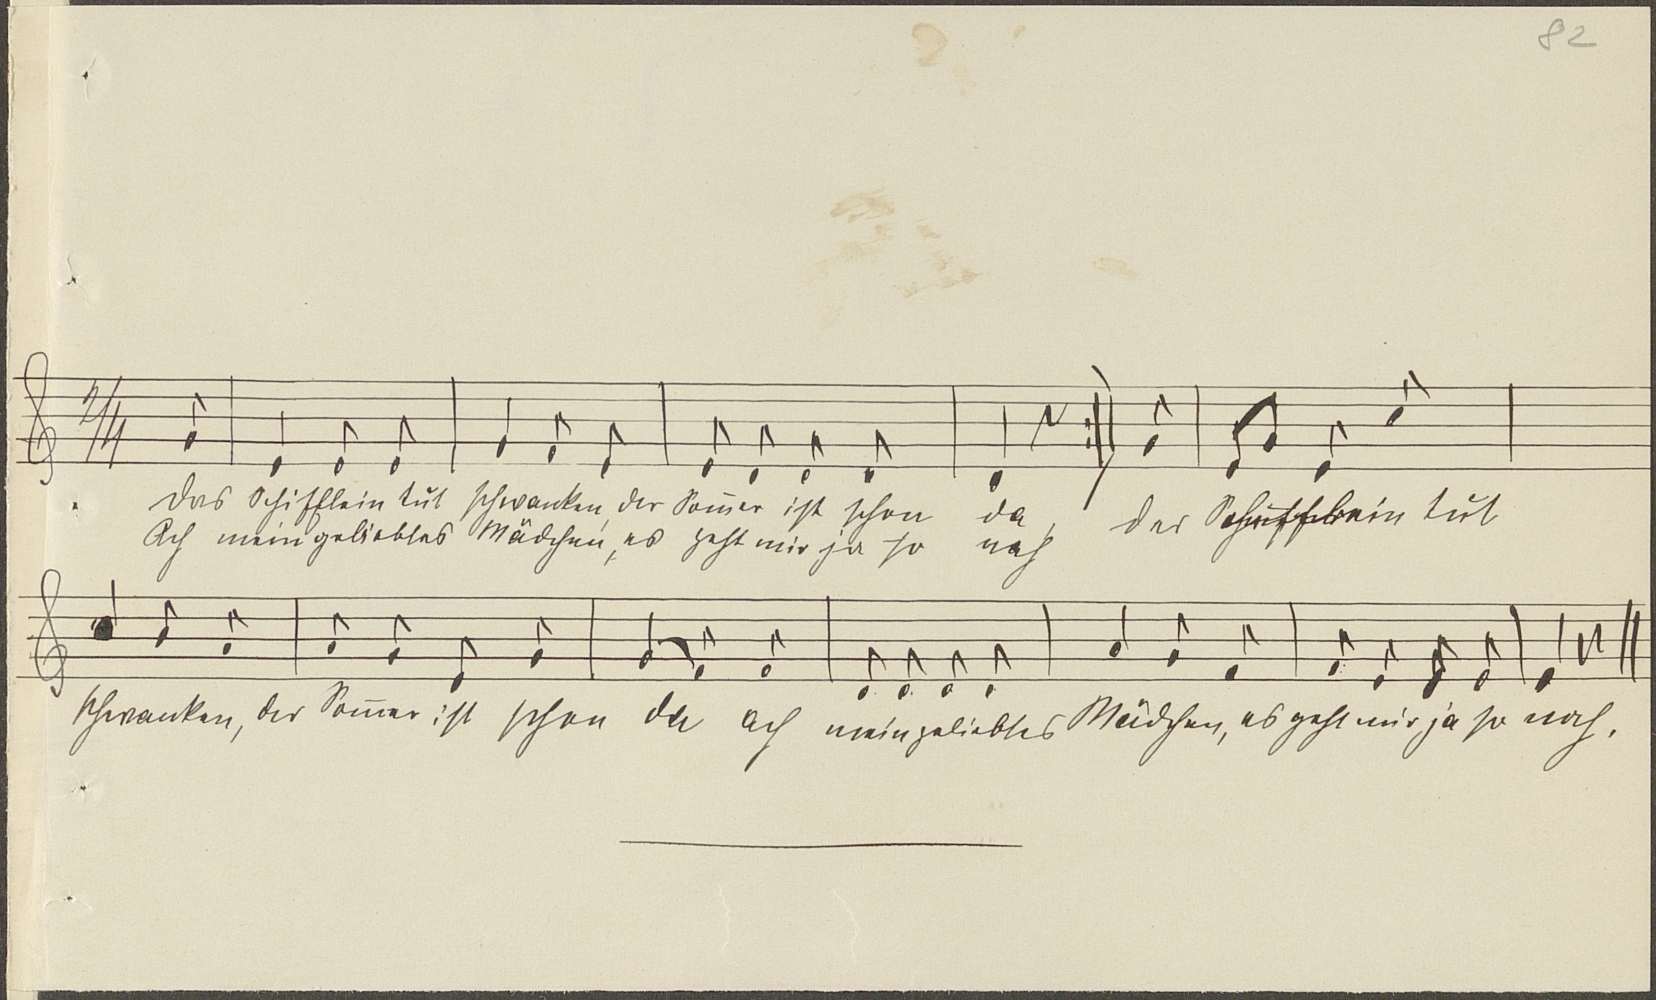 82
2/4
Das Schifflein tut schwanken, der Som̅er ist schon da,
Ach mein geliebtes Mädchen, es geht mir ja so nah
der Schifflein tut
schwanken, der Som̅er ist schon da ach mein geliebtes Mädchen, es geht mir ja so nah.